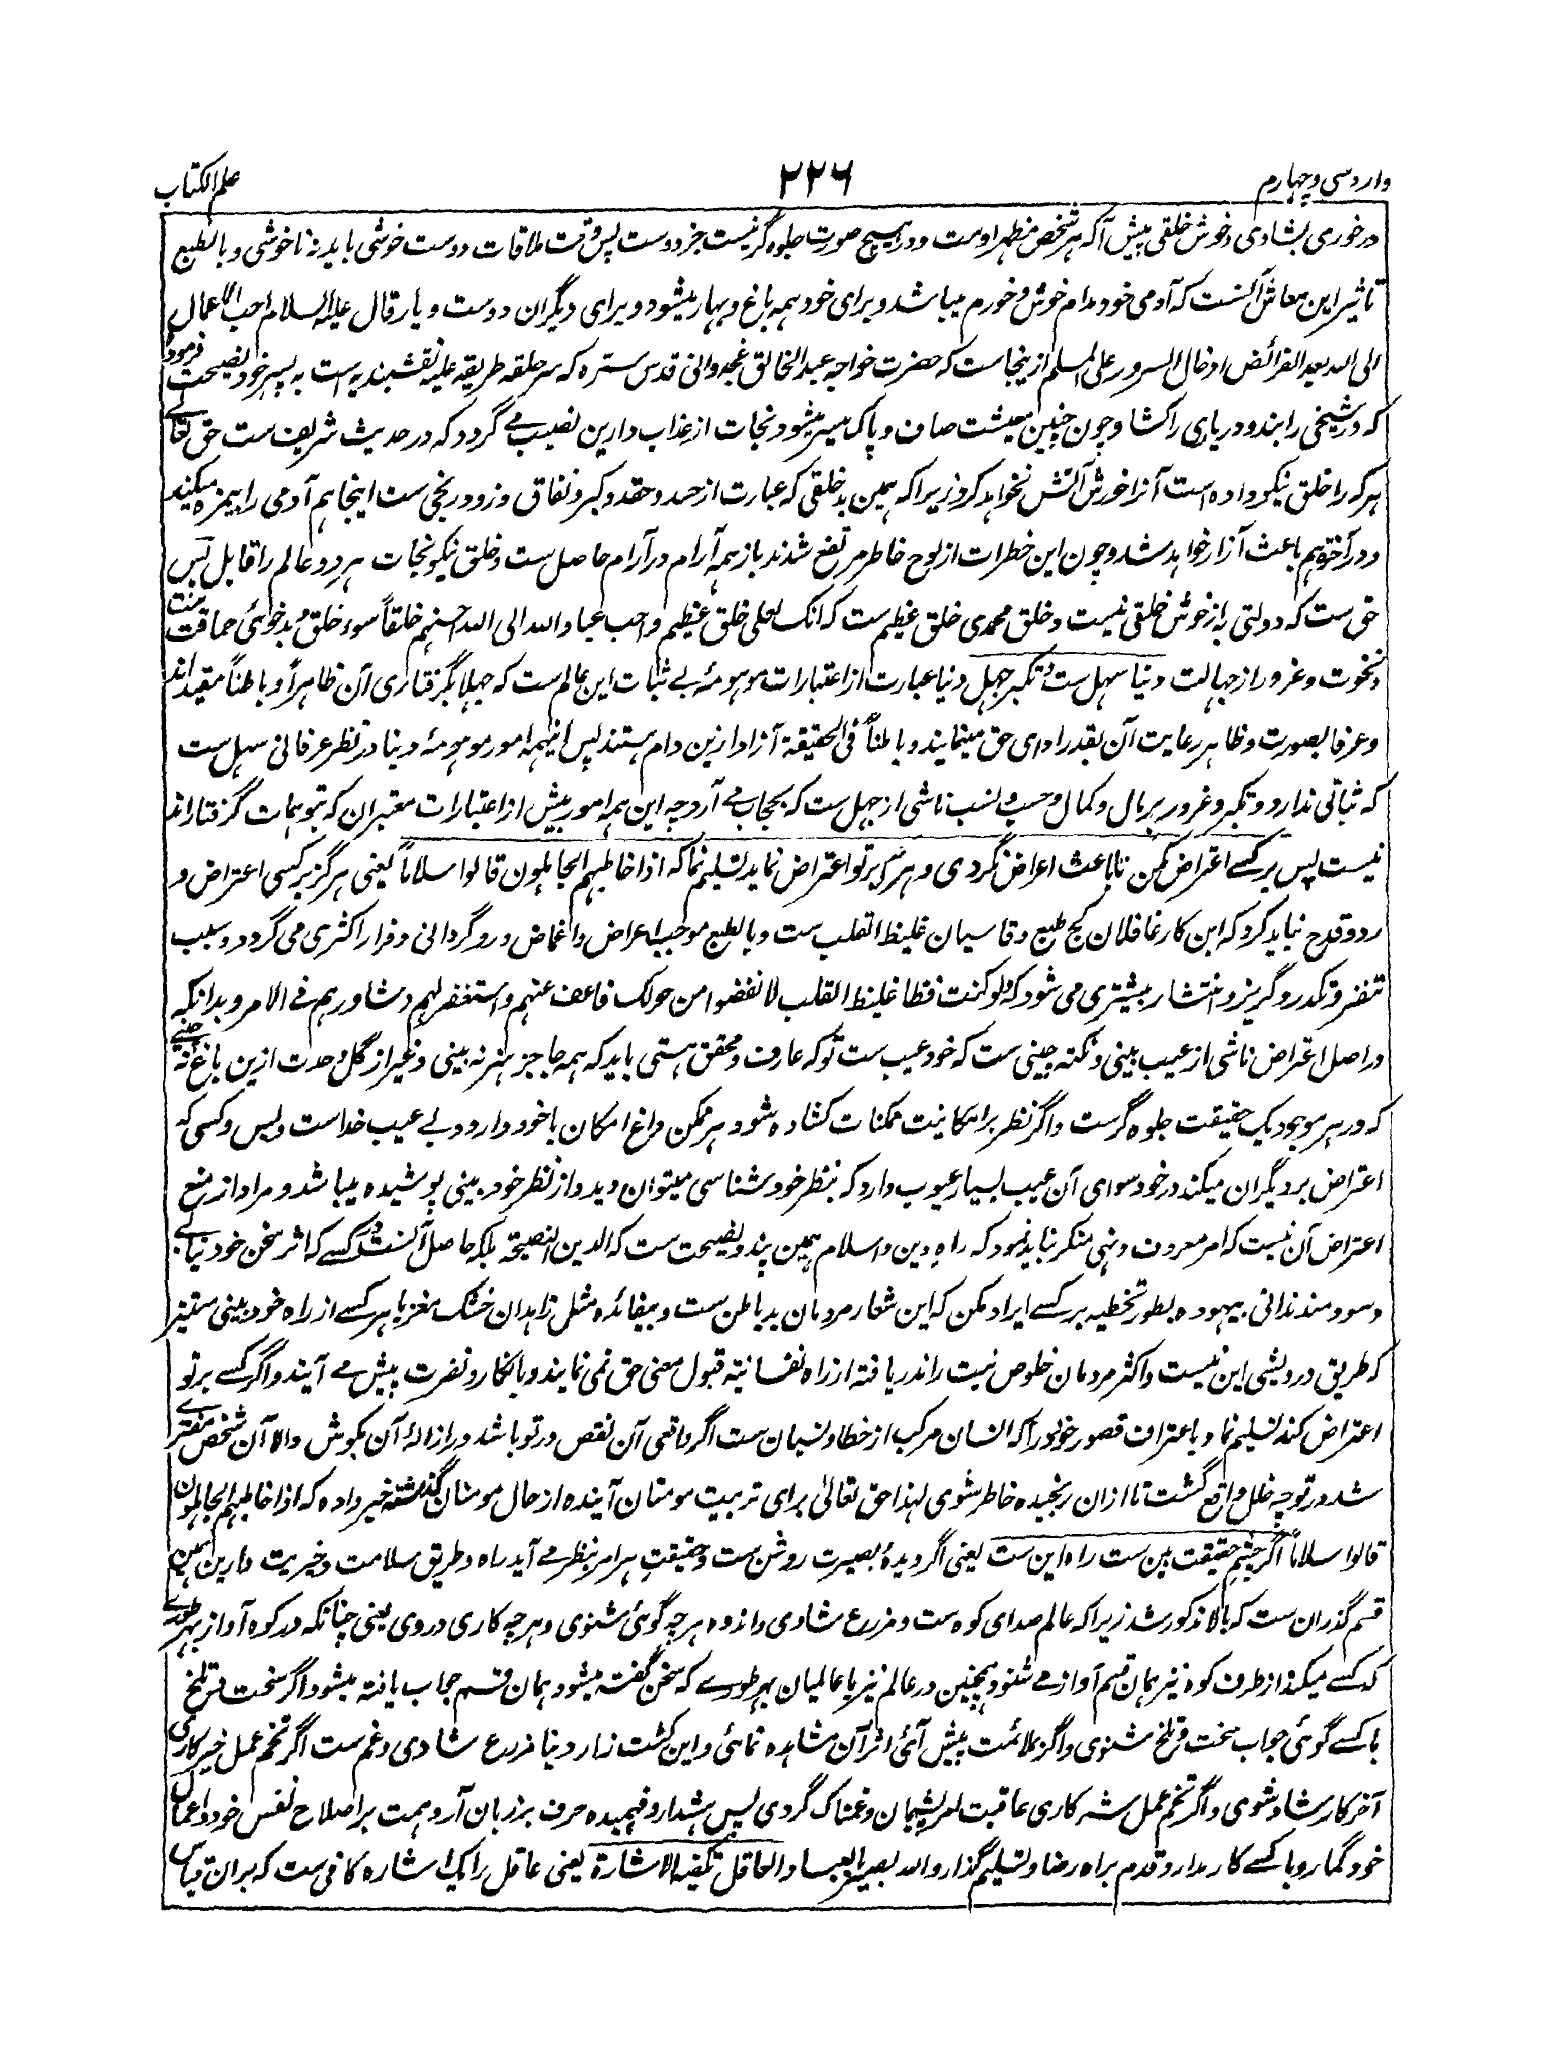 وارد سی و چهارم ۲۲۶ علم الکتاب
در خوری بشادی و خوش خلقی پیش آ که هر شخص مظهر اوست و در هیچ صورت جلوه گر نیست جز دوست پس وقت ملاقات دوست خوشی باید نه ناخوشی و بالطبع
تاثیر این معاش آنست که آدمی خود مدام خوش و خورم میباشد و برای خود همه باغ و بهار میشود و برای دیگران دوست و یار قال علیه السلام احب الاعمال
الی الله بعد الفرائض ادخال السرور علی المسلم ازینجاست که حضرت خواجه عبدالخالق غجدوانی قدس سره که سر حلقه طریقه علیه نقشبندیه است به پسر خود نصیحت فرموده
که در شیخی را بند و در یاری را کشا و چون چنین معیشت صاف و پاک میسر میشود نجات از عذاب دارین نصیب می گردد که در حدیث شریف ست حق تعالی
هر که را خلق نیکو داده است آنرا خورش آتش نخواهد کرد زیرا که همین بد خلقی که عبارت از حسد و حقد و کبر و نفاق و زود رنجی ست اینجا هم آدمی را بیمزه میکند
و در آخرة هم باعث آزار خواهد شد و چون این خطرات از لوح خاطر مرتفع شدند باز همه آرام در آرام حاصل ست و خلق نیکو نجات هر دو عالم را قابل پس
حق ست که دولتی به از خوش خلقی نیست و خلق محمدی خلق عظیم ست که انک لعلی خلق عظیم و احب عباد الله الی الله احسنهم خلقاً سوء خلق و بد خوئی حماقت ست
و نخوت و غرور از جهالت دنیا سهل ست و تکبر جهل دنیا عبارت از اعتبارات موهومۀ بے ثبات این عالم ست که جهلا بگرفتاری آن ظاهراً و باطناً مقید اند
و عرفا بصورت و ظاهر رعایت آن بقدر ادای حق مینمایند و باطناً فی الحقیقة آزاد ازین دام هستند پس اینهمه امور موهومۀ دنیا در نظر عرفانی سهل ست
که ثباتی ندارد و تکبر و غرور بر مال و کمال و حسب و نسب ناشی از جهل ست که بحجاب می آرد چه این همه امور بیش از اعتبارات معتبران که بتوهمات گرفتار اند
نیست پس بر کسے اعتراض مکن تا باعث اعراض نگردی و هر که بر تو اعتراض نماید تسلیم نما که اذا خاطبهم الجاهلون قالوا سلاماً یعنی هرگز بر کسی اعتراض و
رد و قدح نباید کرد که این کار غافلان کج طبع و قاسیان غلیظ القلب ست و بالطبع موجب اعراض و اغماض و روگردانی و فرار اکثری می گردد و سبب
تنفر و تکدر و گریز و انتشار بیشتری می شود که و لو کنت فظا غلیظ القلب لانفضوا من حولک فاعف عنهم و استغفر لهم و شاورهم فی الامر و بدانکه
در اصل اعتراض ناشی از عیب بینی و نکته چینی ست که خود عیب ست تو که عارف و محقق هستی باید که همه جا جز هنر نه بینی و غیر از گل وحدت ازین باغ نه چینی
که در هر موجود یک حقیقت جلوه گر ست و اگر نظر بر امکانیت ممکنات کشاده شود هر ممکن داغ امکان با خود دارد و بے عیب خداست و بس و کسی که
اعتراض بر دیگران میکند در خود سوای آن عیب بسیار عیوب دارد که بنظر خود شناسی میتوان دید و از نظر خود بینی پوشیده میباشد و مراد از رفع
اعتراض آن نیست که امر معروف و نهی منکر نباید نمود که راه دین و اسلام همین پند و نصیحت ست که الدین النصیحة بلکه حاصل آنست که در کسے که اثر سخن خود نیابی
و سودمند ندانی بیهوده بطور تخطیه بر کسے ایراد مکن که این شعار مردمان بد باطن ست و بیفائده مثل زاهدان خشک مغز با هر کسے از راه خود بینی مستیز
که طریق درویشی این نیست و اکثر مردمان خلوص نیت را ندریافته از راه نفسانیة قبول معنی حق نمی نمایند و بانکار و نفرت پیش می آیند و اگر کسے بر تو
اعتراض کند تسلیم نما و باعتراف قصور خود در آ که انسان مرکب از خطا و نسیان ست اگر واقعی آن نقص در تو باشد در ازالۀ آن بکوش و الا آن شخص مفتری
شد در تو چه خلل واقع گشت تا ازان رنجیده خاطر شوی لهذا حق تعالیٰ برای تربیت مومنان آینده از حال مومنان گذشته خبر داده که اذا خاطبهم الجاهلون
قالوا سلاماً اگر چشم حقیقت بین ست راه این ست یعنی اگر دیدۀ بصیرت روشن ست و حقیقت هر امر بنظر می آید راه و طریق سلامت و خیریت دارین همین
قسم گذران ست که بالا مذکور شد زیرا که عالم صدای کوه ست و مزرع شادی و اندوه هر چه گوئی شنوی و هر چه کاری دروی یعنی چنانکه در کوه آواز بهر طورے
که کسے میکند از طرف کوه نیز همان قسم آواز می شنود همچنین در عالم نیز با عالمیان بهر طورے که سخن گفته میشود همان قسم جواب یافته میشود اگر سخت و تلخ
با کسے گوئی جواب سخت و تلخ شنوی و اگر بملائمت پیش آئی اثر آن مشاهده نمائی و این کشت زار دنیا مزرع شادی و غم ست اگر تخم عمل خیر کاری
آخر کار شاد شوی و اگر تخم عمل شر کاری عاقبت الامر پشیمان و غمناک گردی پس هشدار و فهمیده حرف بر زبان آر و همت بر اصلاح نفس خود و اعمال
خود گمار و با کسے کار مدار و قدم براه رضا و تسلیم گذار و الله بصیر بالعباد و العاقل تکفیه الاشارة یعنی عاقل را یک اشاره کافی ست که بران قیاس